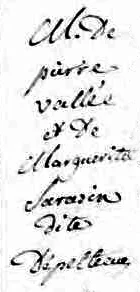 M. de
pierre
vallée
et de
Marguerite
Sarasin
dite
Depelteau